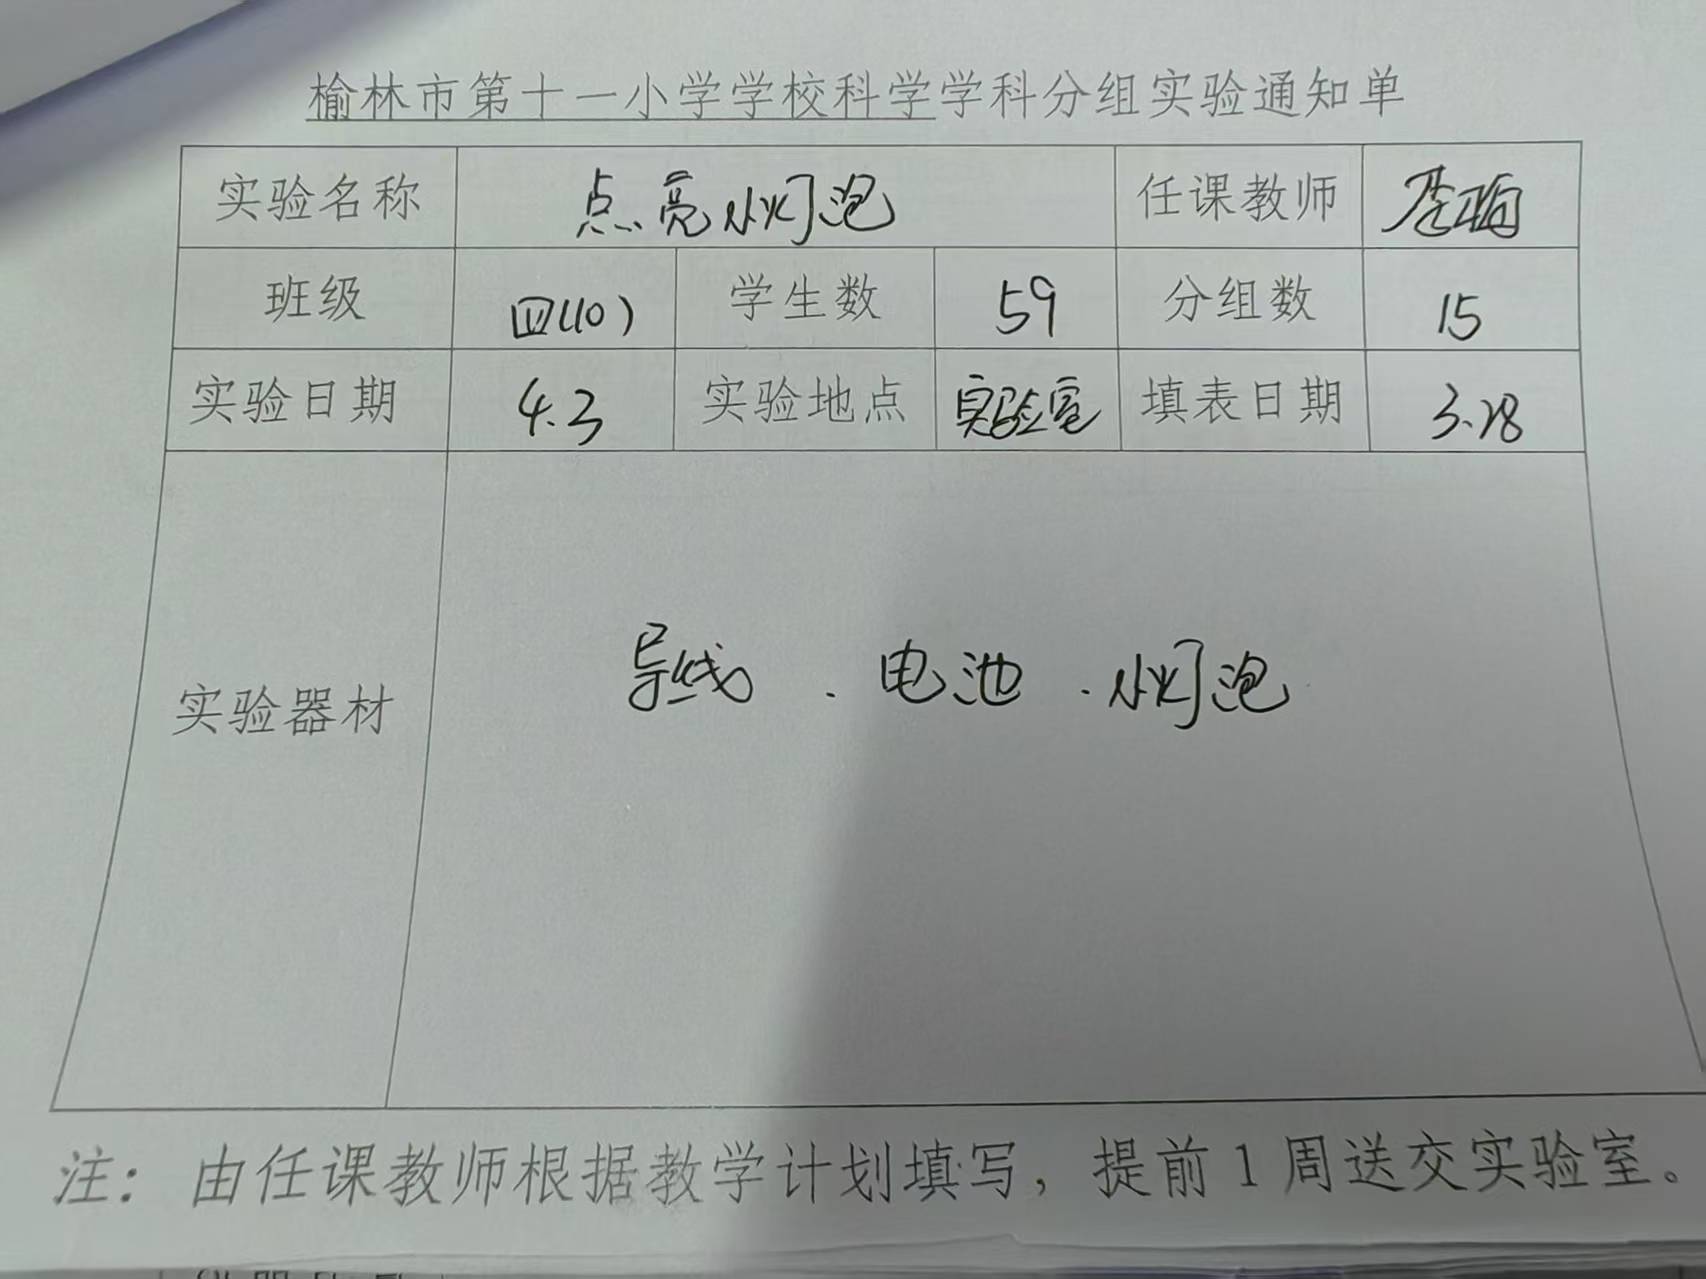 榆林市第十一小学学校科学学科分组实验通知单
实验名称 点亮小灯泡 任课教师
班级 四(10) 学生数 59 分组数 15
实验日期 4.3 实验地点 实验室 填表日期 3.28
实验器材 导线 . 电池 . 小灯泡
注：由任课教师根据教学计划填写，提前1周送交实验室。